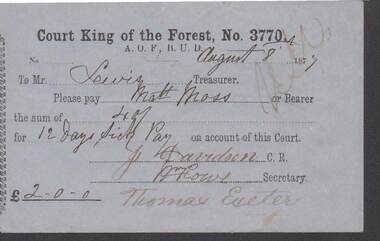 Court King of the Forest, No. 3770,
A. O. F., B. U. D.
No August 8th 1877
To Mr. Lewis Treasurer.
Please pay Matt Moss or Bearer
the sum of 40/
for 12 Days Sick Pay on account of this Court.
J. Davidson C. R.
W Rowe Secretary.
£2-0-0 Thomas Exeter